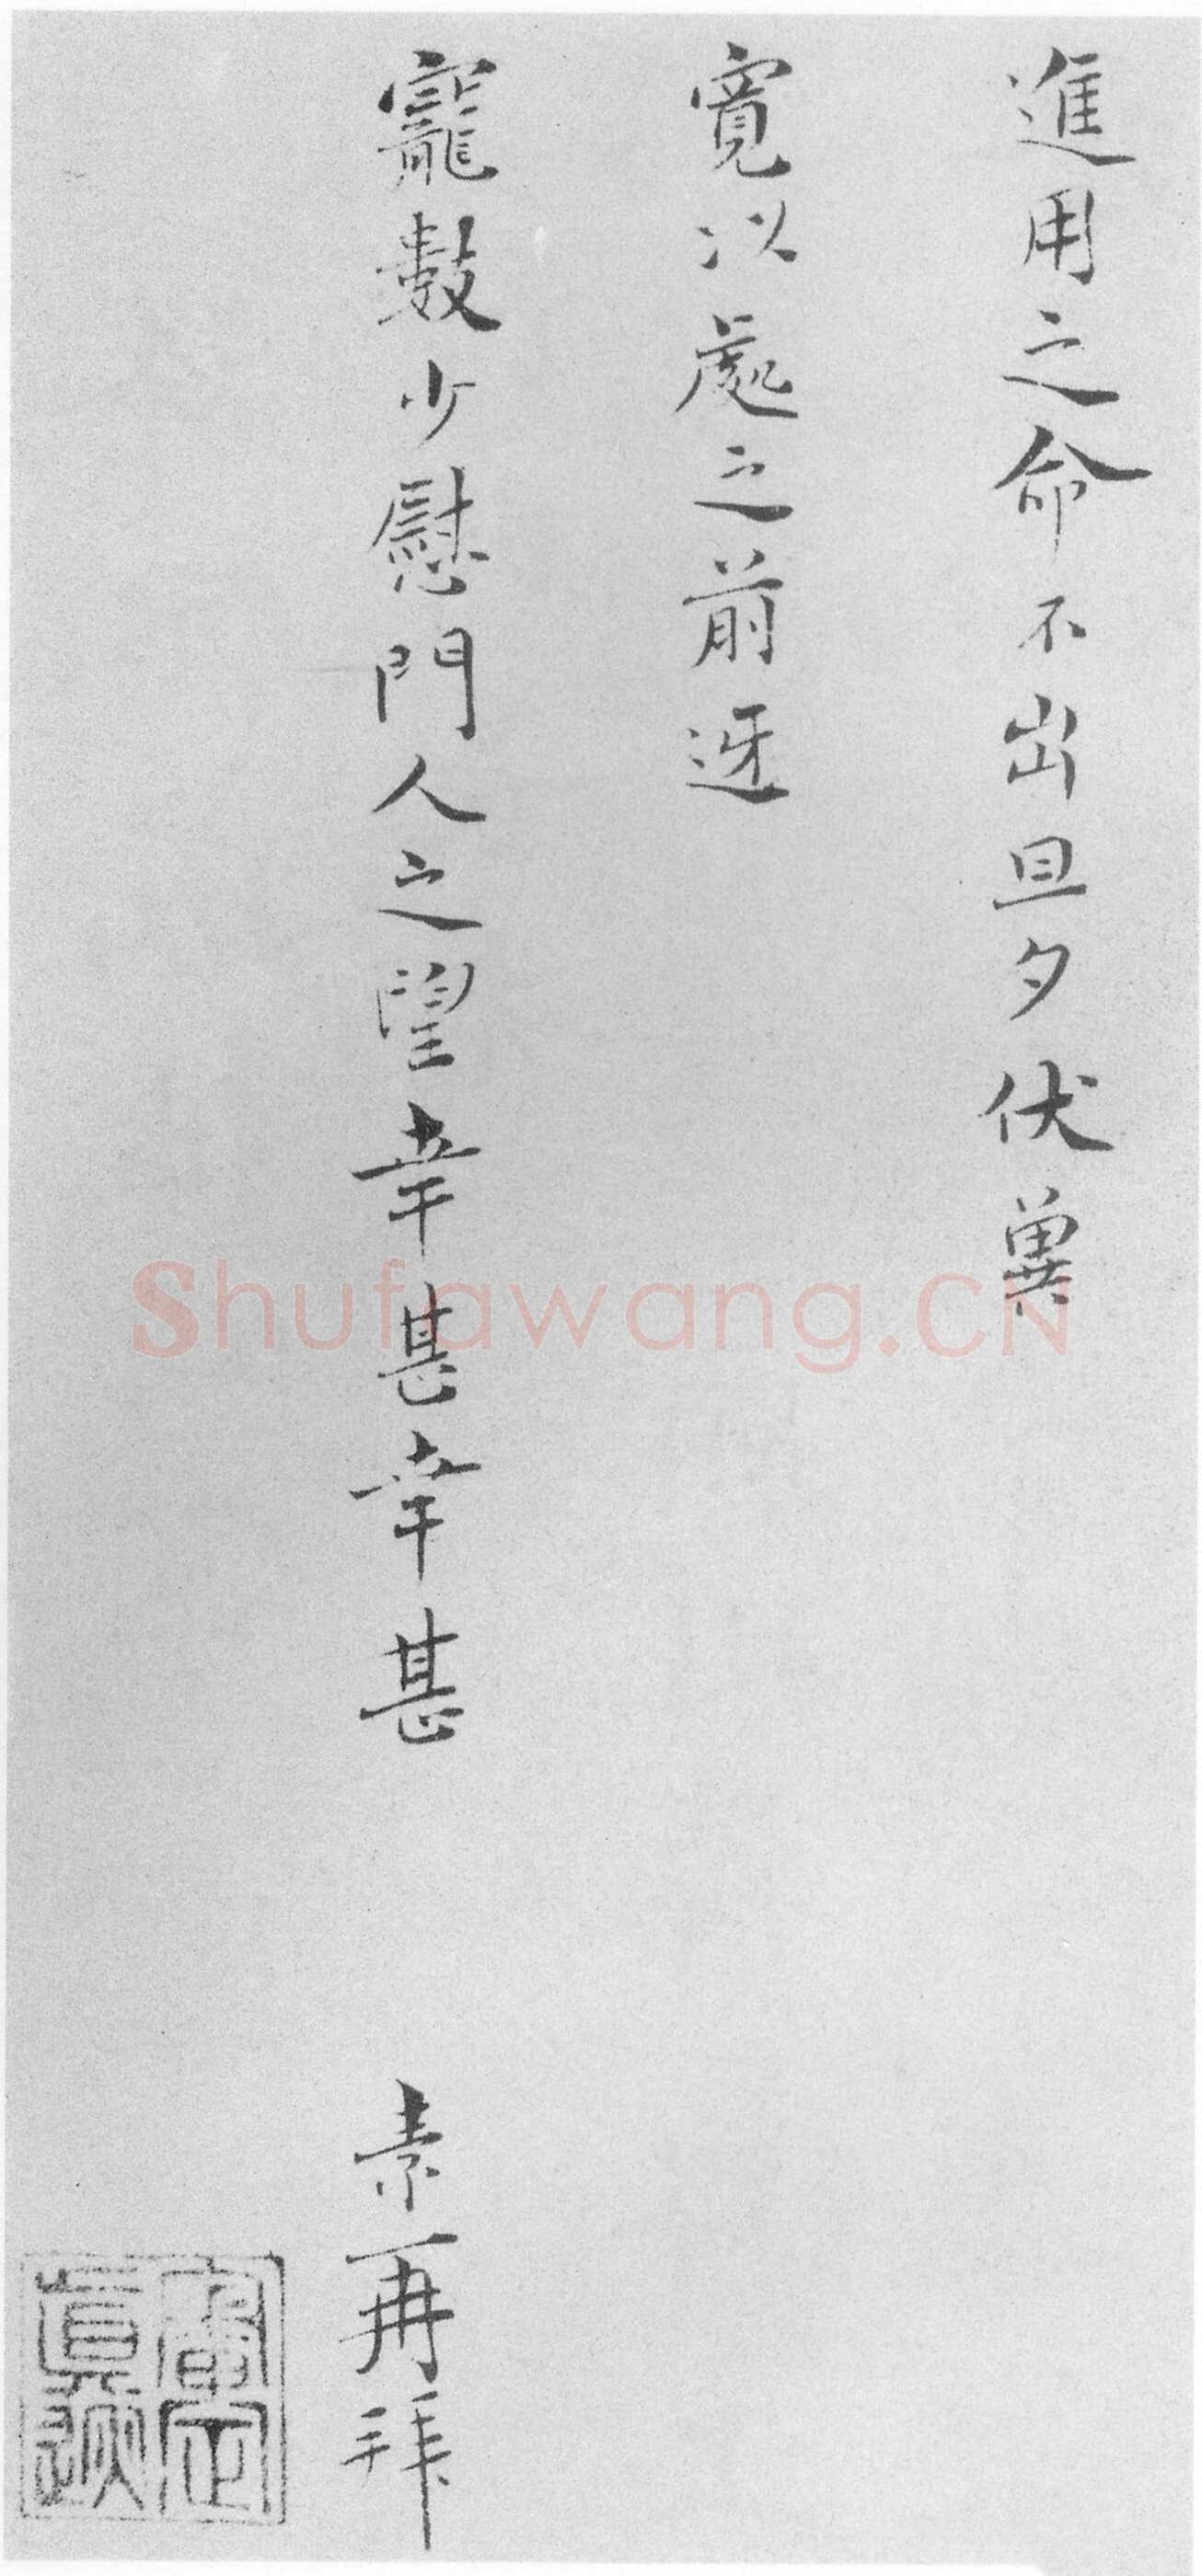 進用之命不出旦夕伏冀
寬以處之前迓
寵數少慰門人之望幸甚幸甚
素再拜
Shufawang.CN